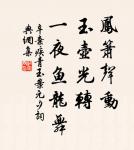 鳳簫聲動
玉壺光轉
一夜魚龍舞
辛棄疾青玉案元夕詞
典網集